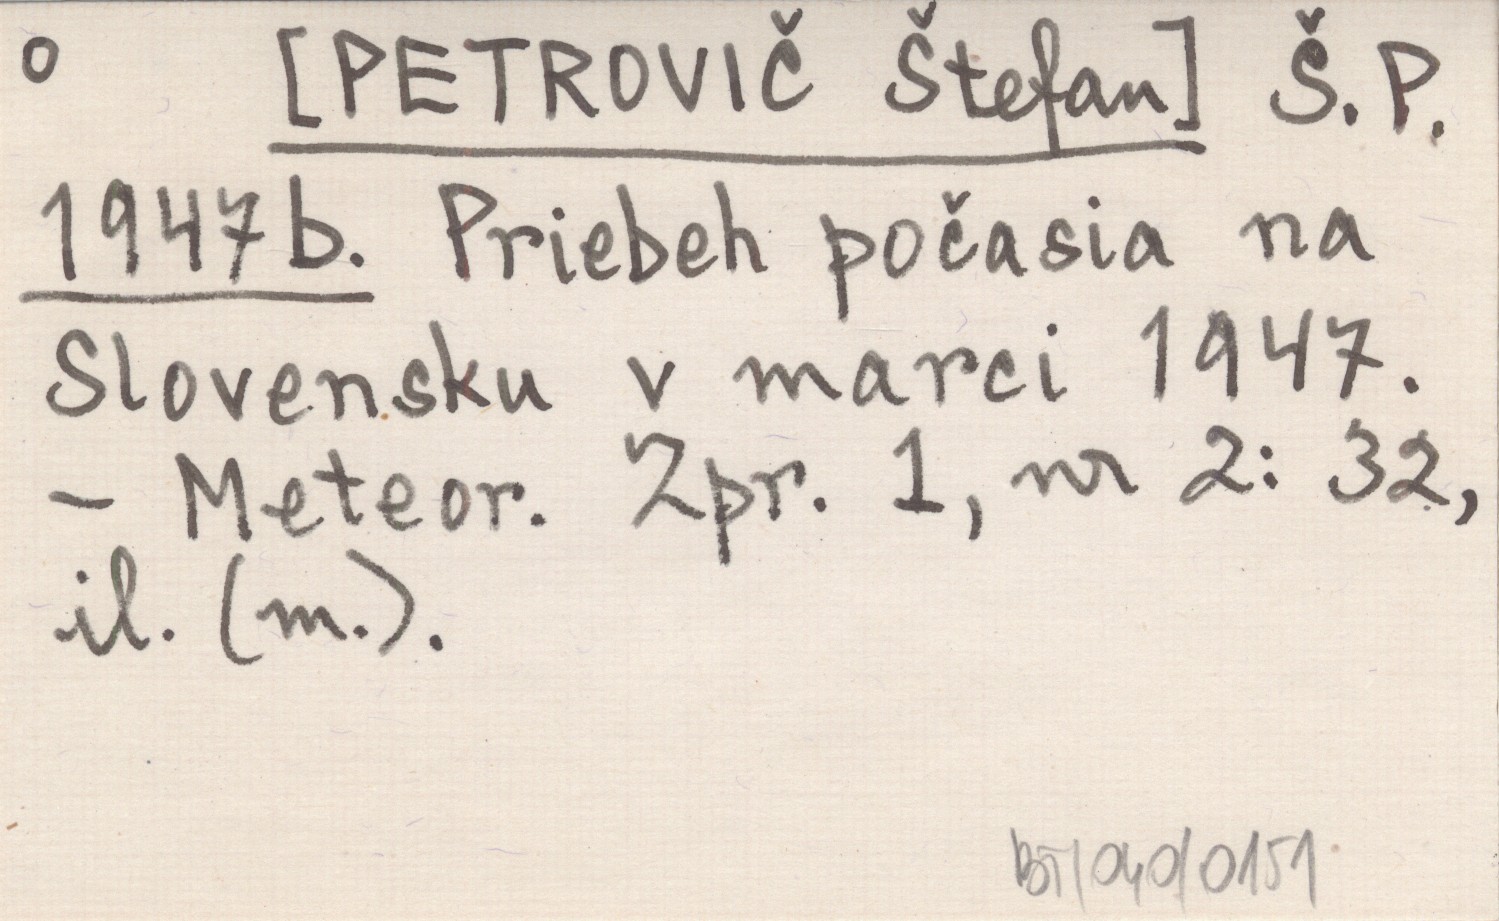 o [PETROVIČ Štefan] Š.P.
1947b. Priebeh počasia na
Slovensku v marci 1947.
– Meteor. Zpr. 1, nr 2: 32,
il. (m.).
BT/040/0151